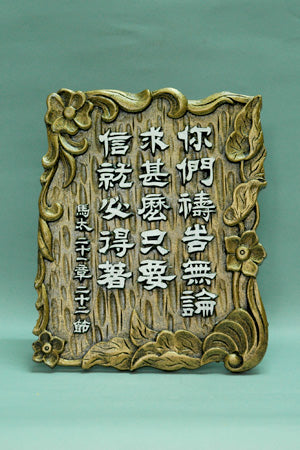 你們禱告無論
求甚麼只要
信就必得著
馬太二十一章二十二節